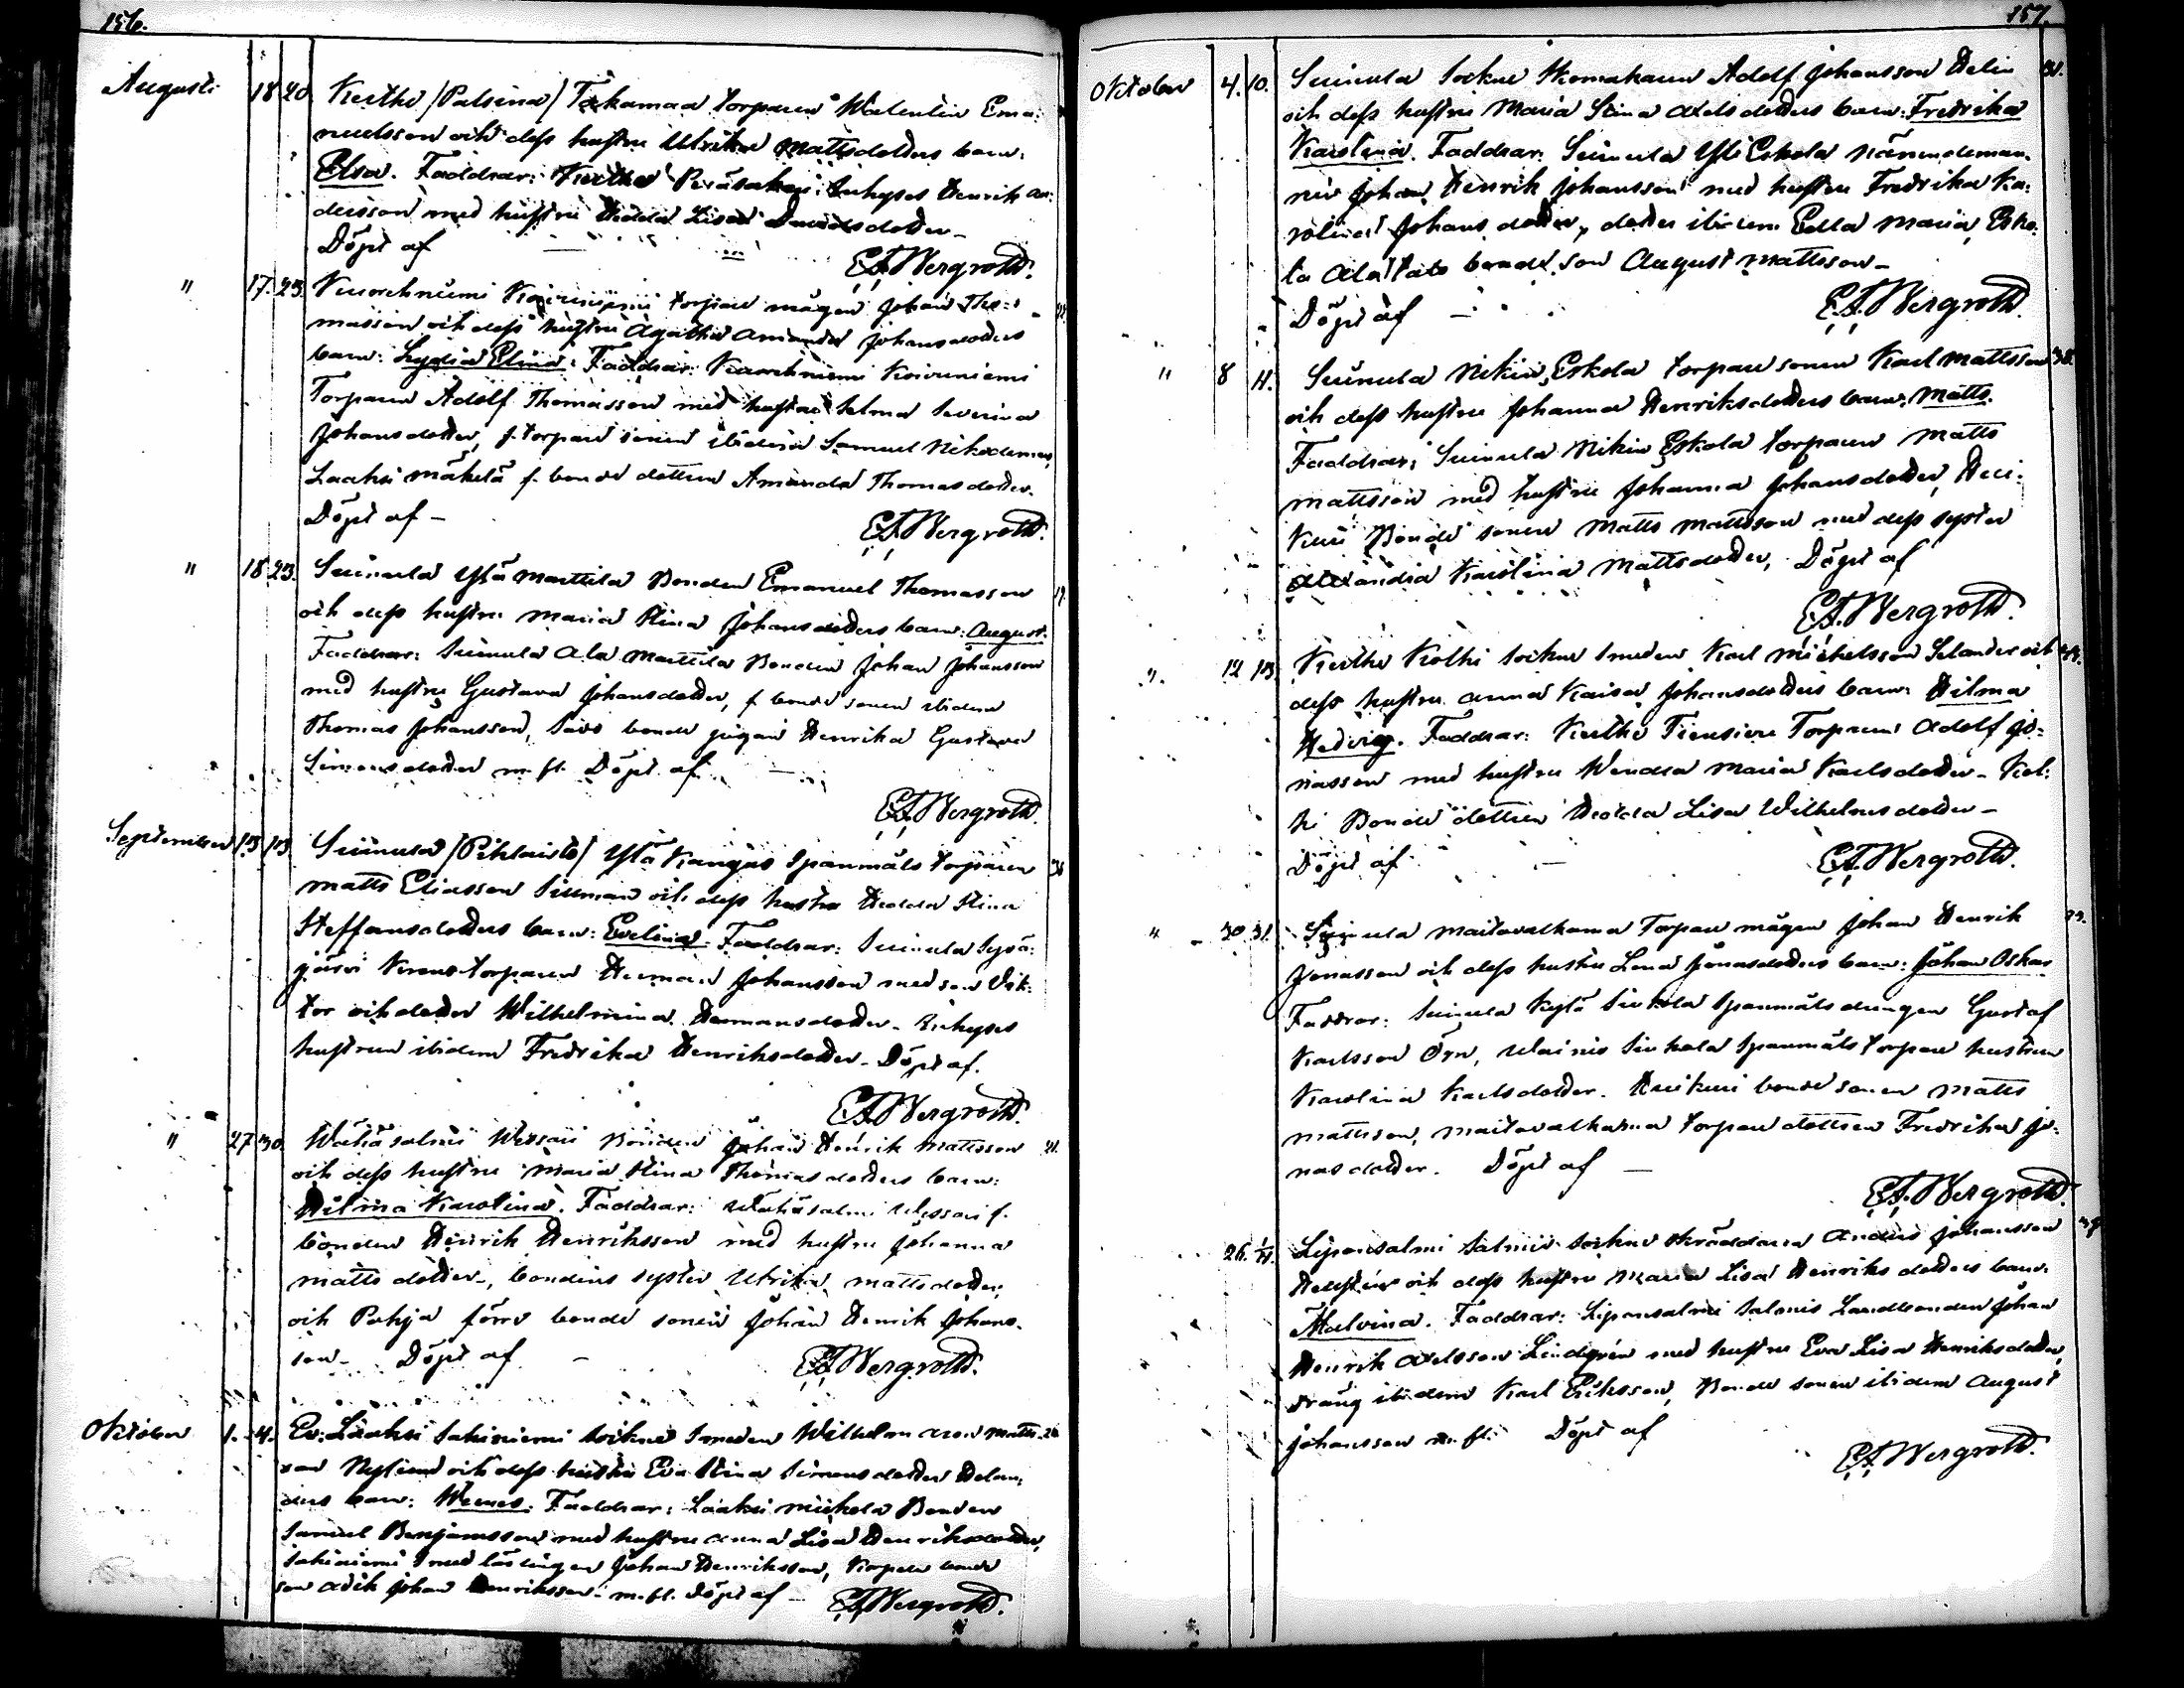 156.
Augusti 18 20. Kuithe /Palsina/ Takamaa torparen Walentin Ema-
nuelsson och dess hustru Ulrika Mattsdotters barn:
Elsa. Faddrar: Kuithe Peräsaku Inhyses Henrik An-
dersson med hustru Hedda Lisa Davidsdotter –
Döpt af –
E.F. Bergroth.
" 17. 23. Kuorehniemi Koivuniemi torpare mågen Johan Tho-
masson och dess hustru Agatha Amanda Johansdotters
barn: Lydia Elina: Faddrar: Kuorehniemi Koivuniemi
Torparen Adolf Thomasson med hustru Selma Severina
Johansdotter, f. torpare sonen ibidem Samuel Nikodemus,
Laaksi Mäkelä f. bonde dottren Amanda Thomasdotter.
Döpt af –
E.F. Bergroth.
" 18 23. Suinula Ylä Marttila Bonden Emanuel Thomasson 19.
och dess hustru Maria Stina Johansdotters barn: August.
Faddrar: Suinula Ala Marttila Bonden Johan Johansson
med hustru Gustava Johansdotter, f. bonde sonen ibidem
Thomas Johansson, bonde pigan Henrika Gustava
Simonsdotter m. fl. Döpt af –
E.F. Bergroth.
September 13 13 Suinula /Pihlaisto/ Ylä Kangas Spanmåls torparen
Matts Eliasson Sillman och dess hustru Hedda Stina
Steffansdotters barn: Evelina. Faddrar: Suinula Syvä-
järvi Krono torparen Herman Johansson med son Vik-
tor och dotter Wilhelmina Hermansdotter – Inhyses
hustrun ibidem Fredrika Henriksdotter – Döpt af.
E.F. Bergroth.
" 27 30. Wähäsalmi Wessari Bonden Johan Henrik Mattsson 21.
och dess hustru Maria Stina Thomasdotters barn:
Hilma Karolina. Faddrar: Wähäsalmi Wessari f.
bonden Henrik Henriksson med hustru Johanna
Mattsdotter –, bondens syster Ulrika Mattsdotter,
och Pohja förre bonde sonen Johan Henrik Johans-
son – Döpt af –
E.F. Bergroth.
Oktober 1. 4. Ev: Laaksi Sahiniemi sockne Smeden Wilhelm Aron Matts-
son Nylund och dess hustru Eva Stina Simonsdotter Helan-
ders barn: Werner. Faddrar: Laaksi Mickola Bonden
Samuel Benjamsson med hustru Anna Lisa Henriksdotter,
Sahiniemi Smed lärlingen Johan Henriksson, Korpela bonde
son Adik Johan Henriksson – m. fl. Döpt af – E.F. Bergroth.
157.
Oktober 4. 10. Suinula Sockne Skomakaren Adolf Johansson Helin
och dess hustru Maria Stina Axelsdotters barn: Fredrika
Karolina. Faddrar: Suinula Yli Eskola nämndeman-
nen Johan Henrik Johansson med hustru Fredrika Ka-
rolina Johansdotter, dotter ibidem Edla Maria, Esko-
la Ala Talo bonde son August Mattsson –
Döpt af –
E.F. Bergroth.
" 8 11. Suinula Nikin, Eskola torpare sonen Karl Mattsson
och dess hustru Johanna Henriksdotters barn: Matts.
Faddrar: Suinula Nikin Eskola torparen Matts
Mattsson med hustru Johanna Johansdotter, Hui-
kuri Bonde sonen Matts Mattsson med dess syster
Alexandra Karolina Mattsdotter, Döpt af
E.F. Bergroth.
" 12 13 Kuithe Kolhi Sockne Smeden Karl Michelsson Selander och
dess hustru Anna Kaisa Johansdotters barn: Hilma
Hedvig. Faddrar: Kuithe Tiensivu Torparen Adolf Jo-
nasson med hustru Wendla Maria Karlsdotter – Kol-
hi Bonde dottren Hedda Lisa Wilhelmsdotter –
Döpt af –
E.F. Bergroth.
" 30 31. Suinula Maitovalkama Torpare mågen Johan Henrik
Jonasson och dess hustru Lena Jonasdotters barn: Johan Oskar
Faddrar: Suinula Kylä Siukola Spanmåls drengen Gustaf
Karlsson Örn, Uksinio Siukola Spanmåls torpare hustrun
Karolina Karlsdotter. Huikuri bonde sonen Matts
Mattsson, Maitovalkama torpare dottren Fredrika Jo-
nasdotter. Döpt af –
E.F. Bergroth.
26. 1/11. Liponsalmi Salmis Sockne skräddaren Anders Johansson
Hellstén och dess hustru Maria Lisa Henriksdotters barn:
Malvina. Faddrar: Liponsalmi Salmis Landbonden Johan
Henrik Axelsson Lindgren med hustru Eva Lisa Henriksdotter,
dräng ibidem Karl Eriksson, Bonde sonen ibidem August
Johansson m. fl. Döpt af
E.F. Bergroth.